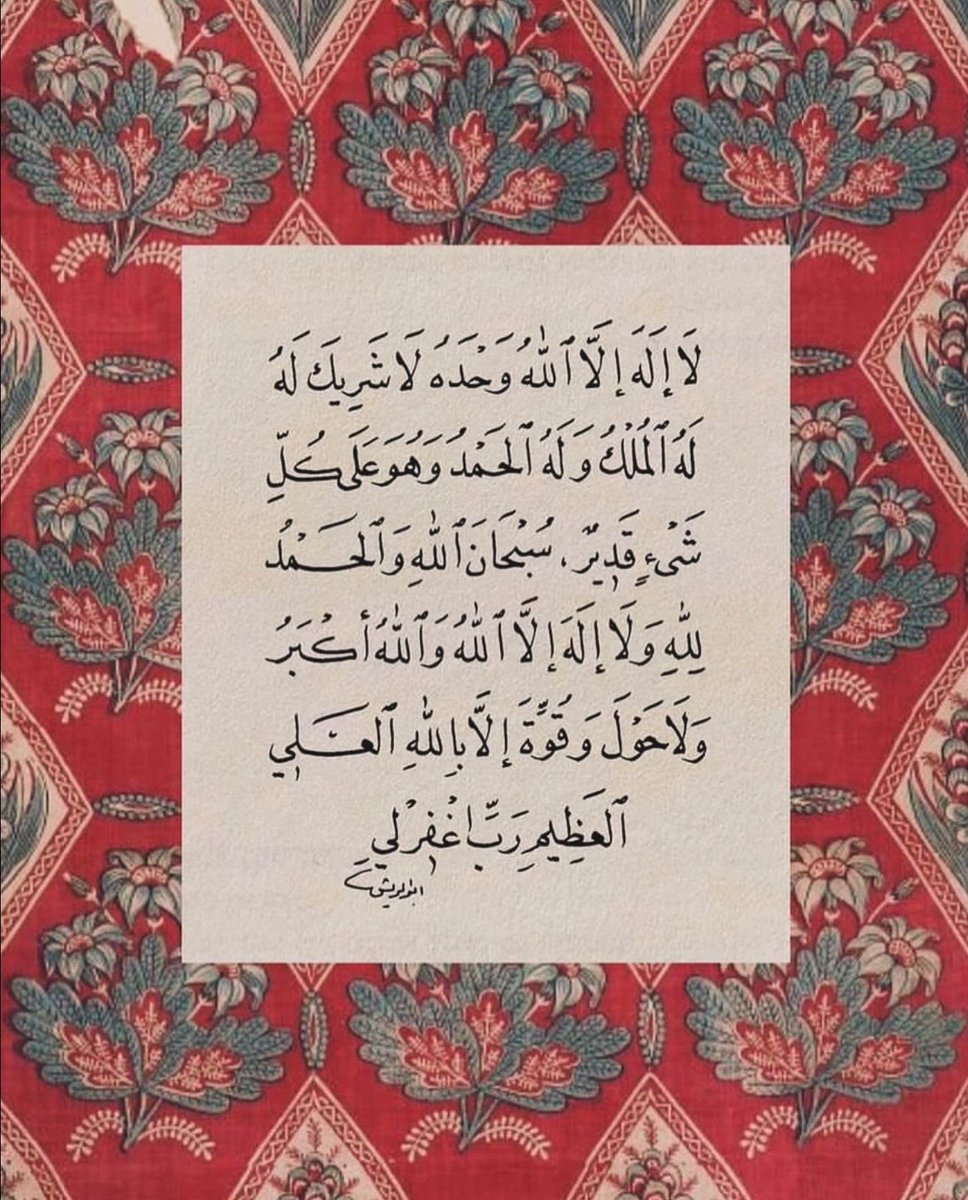 لَا إِلَهَ إِلَّا ٱللّٰهُ وَحْدَهُ لَا شَرِيكَ لَهُ
لَهُ ٱلْمُلْكُ وَلَهُ ٱلْحَمْدُ وَهُوَ عَلَى كُلِّ
شَىْءٍ قَدِيرٌ، سُبْحَانَ ٱللّٰهِ وَٱلْحَمْدُ
لِلّٰهِ وَلَا إِلَهَ إِلَّا ٱللّٰهُ وَٱللّٰهُ أَكْبَرُ
وَلَا حَوْلَ وَ قُوَّةَ إِلَّا بِاللّٰهِ ٱلْعَلِي
ٱلْعَظِيمِ رَبِّ اغْفِرْ لِي